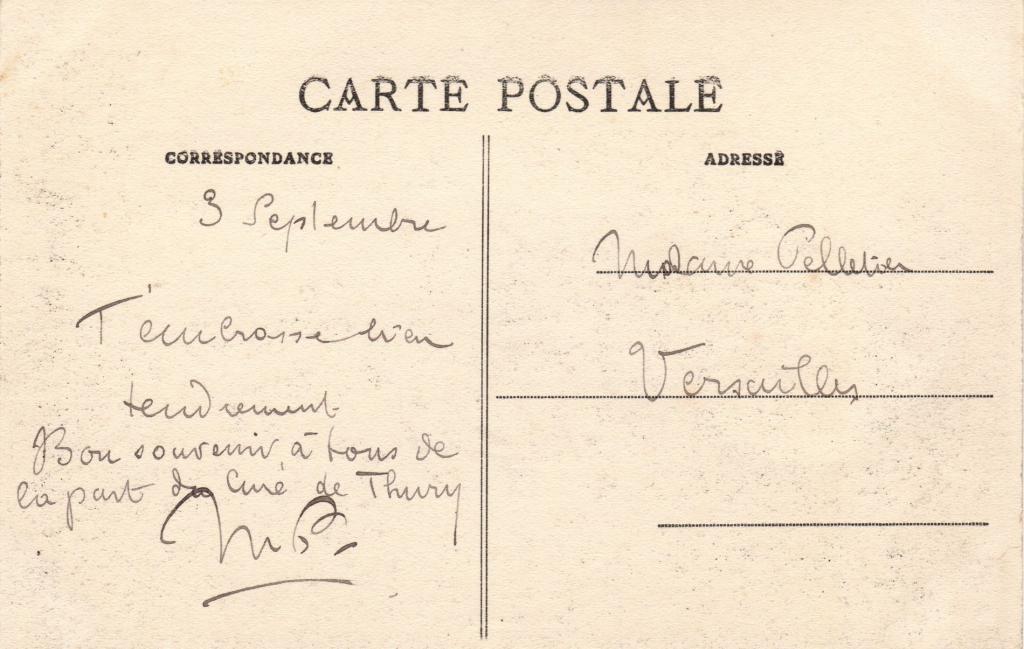 CARTE POSTALE
CORRESPONDANCE
3 Septembre
T'embrasse bien
tendrement
Bon souvenir à tous de
la part du Curé de Thury
MP.
ADRESSE
Madame Pelletier
Versailles